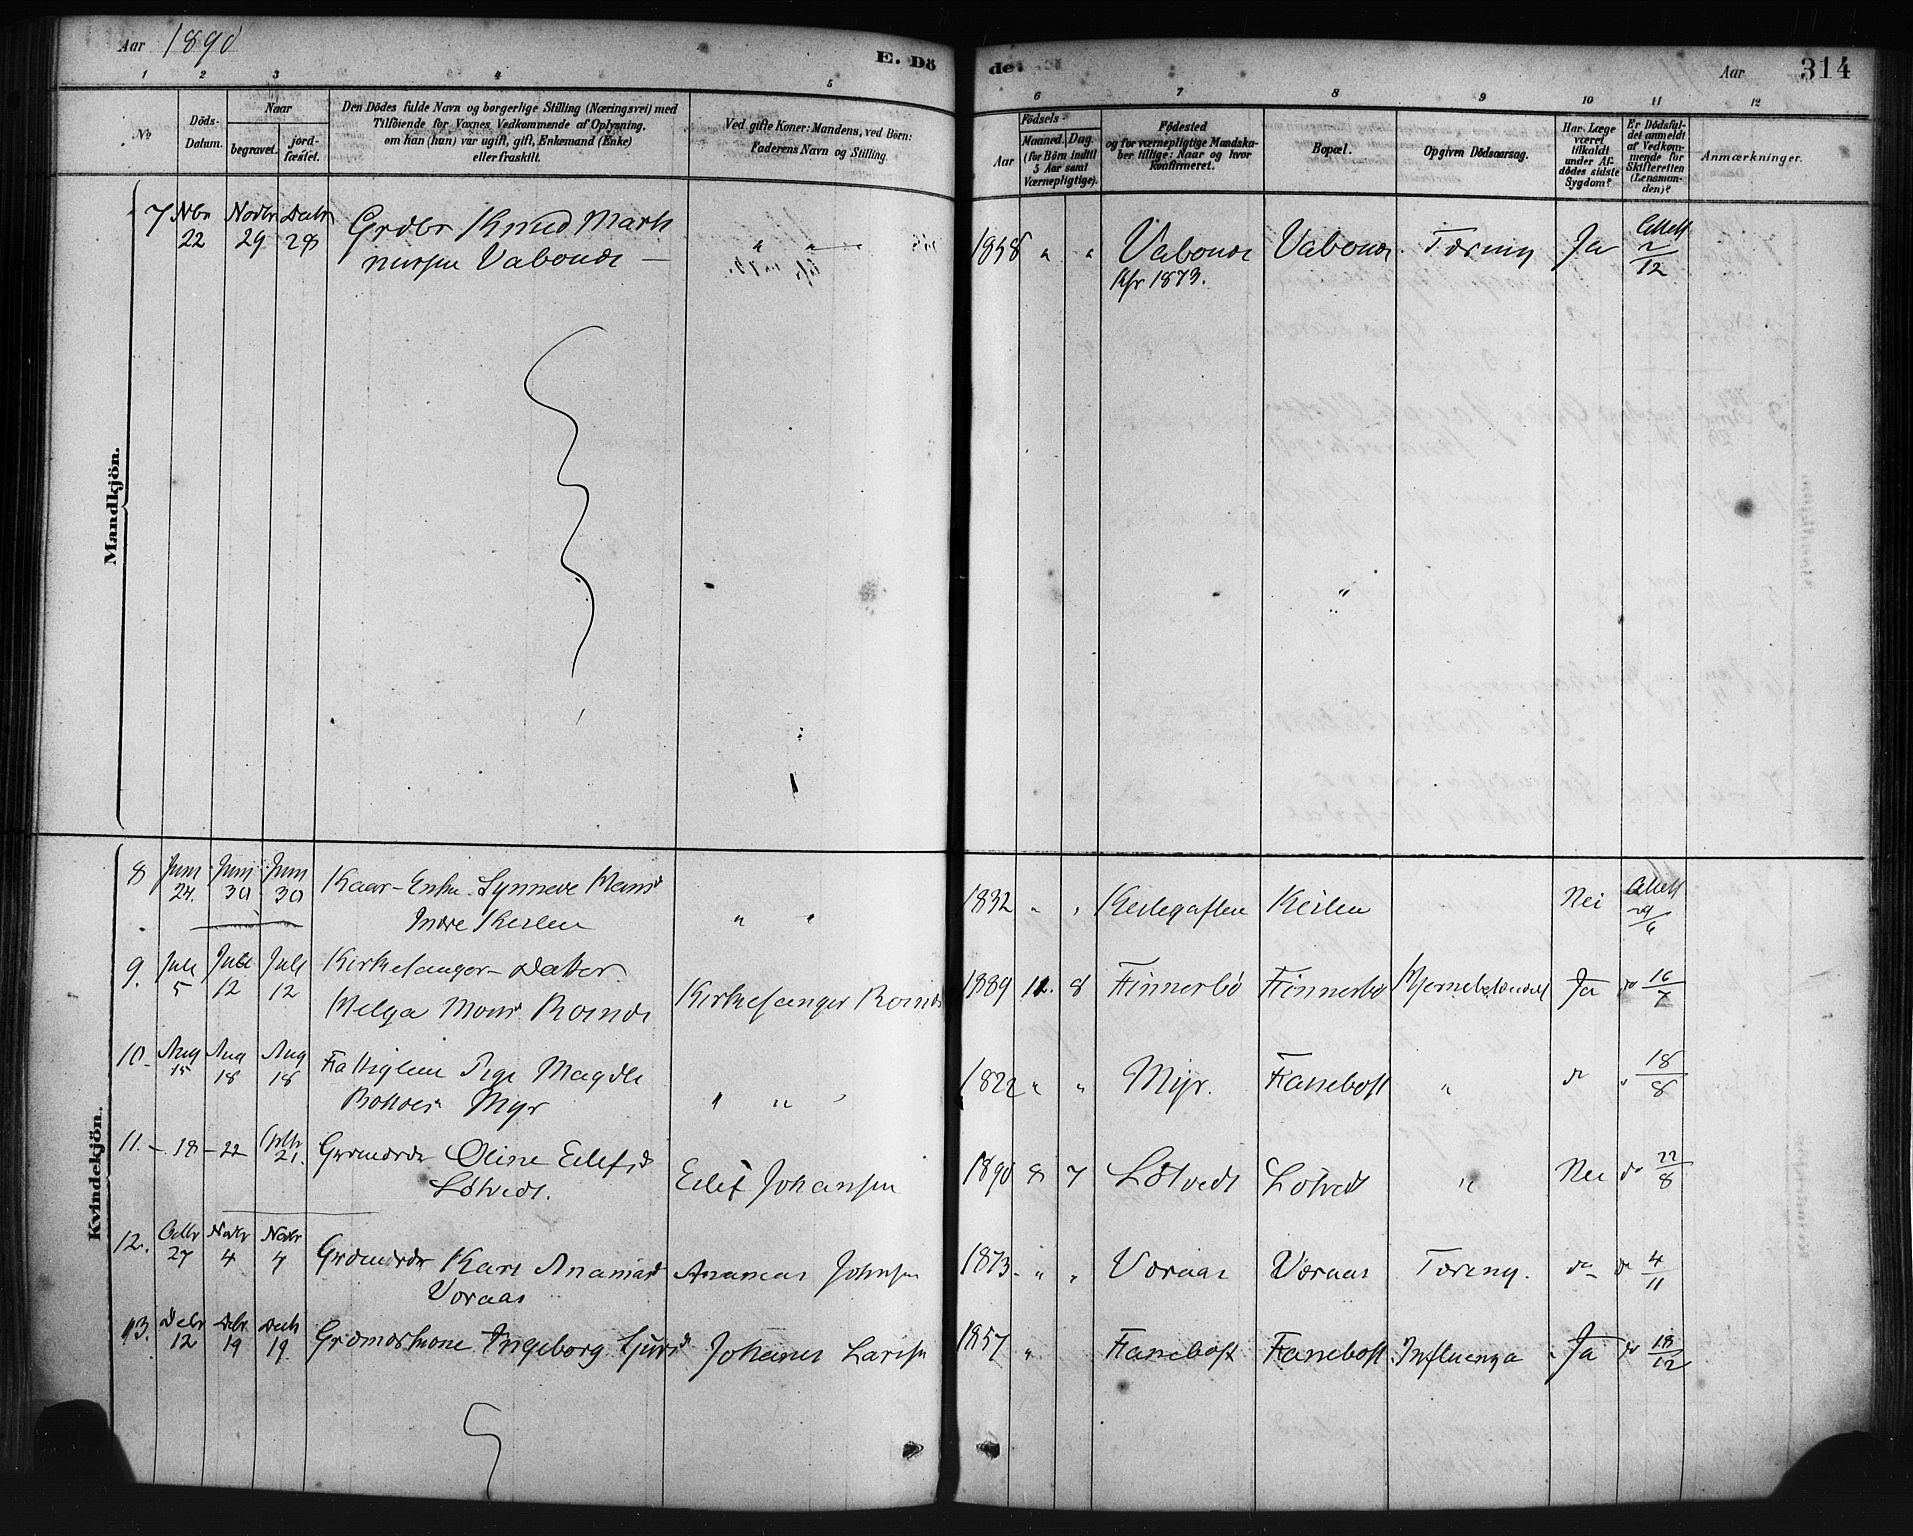 Aar 1890
E. Dö
de.
Aar
314
1 2 3 4 5 6 7 8 9 10 11 12
No
Döds-Datum.
Naar
begravet.
jord-fæstet.
Den Dödes fulde Navn og borgerlige Stilling (Næringsvei) med
Tilföiende for Voxnes Vedkommende af Oplysning,
om han (hun) var ugift, gift, Enkemand (Enke)
eller fraskilt.
Ved gifte Koner: Mandens, ved Börn:
Faderens Navn og Stilling.
Födsels-
Aar
Maaned. Dag.
(for Börn indtil
5 Aar samt
Værnepligtige).
Födested
og for værnepligtige Mandska-
ber tillige: Naar og hvor
Konfirmeret.
Bopæl.
Opgiven Dödsaarsag.
Har Læge
været
tilkaldt
under Af-
dödes sidste
Sygdom?
Er Dödsfal-
det anmeldt
af Vedkom-
mende for
Skifteretten
(Lensman-
den)?
Anmærkninger.
Mandkjön.
7 Nbr 22 Novbr 29 Decbr 28 Grdbr Knud Mart
Vabenæs — " " 1858 " " Vabenæs Vabenæs Tæring Ja 2/12
Kfr 1873.
Kvindekjön.
8 Juni 24. Juni 30 Juni 30 Kaar-Enke Synneve Mons
Indre Keilen " " 1832 " " Keilegaften Keilen Nei 29/6
9. Juli 5 Juli 12 Juli 12 Kirkesanger-Datter
Helga Mons Kirkesanger 1889 12. 8 Finnerbö Finnerbö Ja do 16/7
10. Aug 15 Aug 18 Aug 18 Fattiglem Pige Magdli
Myr " " " 1822 " " Myr. Fanebost " do " 18/8
11. – 18 – 22 21. Oline Eilefsd
Lötvedt. Eilef Johansen 1890 8 7 Lötvedt Lötvedt " Nei do 22/8
12. Octbr 27 Novbr 4 Novbr 4 Kari Ananiasd
Voraas Ananias Johnsen 1873 " " Voraas Voraas Tæring. do do 4/11
13. Debr 12 Debr 19 Decb 19 Grdmdskone Ingeborg Johanes Larsen 1857 " Fanebost Fanebost Influenza Ja do 18/12